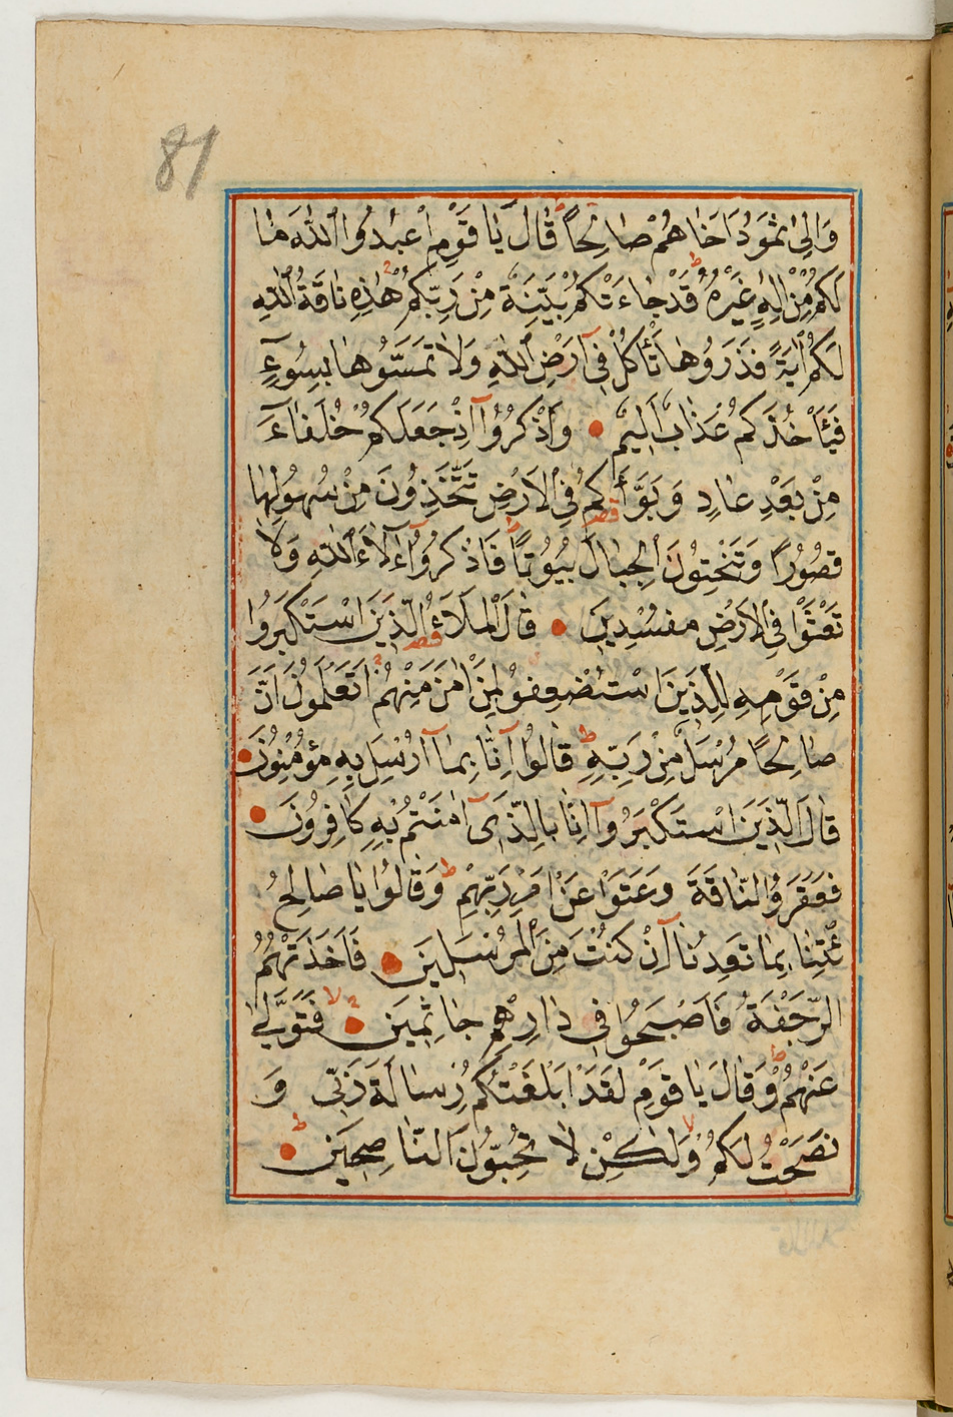 81
وَاِلىٰ ثَمُودَ اَخٰاهُمْ صٰالِحًا قٰالَ يٰا قَوْمِ اعْبُدُوا اللّٰهَ مٰا
لَكُمْ مِنْ اِلٰهٍ غَيْرُهُ قَدْ جٰاءَتْكُمْ بَيِّنَةٌ مِنْ رَبِّكُمْ هٰذِهِ نٰاقَةُ اللّٰهِ
لَكُمْ اٰيَةً فَذَرُوهٰا تَأْكُلْ فِى اَرْضِ اللّٰهِ وَلاٰ تَمَسُّوهٰا بِسُوءٍ
فَيَأْخُذَكُمْ عَذٰابٌ اَلِيمٌ وَاذْكُرُوا اِذْ جَعَلَكُمْ خُلَفٰاءَ
مِنْ بَعْدِ عٰادٍ وَبَوَّأَكُمْ فِى الْاَرْضِ تَتَّخِذُونَ مِنْ سُهُولِهٰا
قُصُورًا وَتَنْحِتُونَ الْجِبٰالَ بُيُوتًا فَاذْكُرُوا اٰلاٰءَ اللّٰهِ وَلاٰ
تَعْثَوْا فِى الْاَرْضِ مُفْسِدِينَ قٰالَ الْمَلَاُ الَّذِينَ اسْتَكْبَرُوا
مِنْ قَوْمِهِ لِلَّذِينَ اسْتُضْعِفُوا لِمَنْ اٰمَنَ مِنْهُمْ اَتَعْلَمُونَ اَنَّ
صٰالِحًا مُرْسَلٌ مِنْ رَبِّهِ قٰالُوا اِنّٰا بِمٰا اُرْسِلَ بِهِ مُؤْمِنُونَ
قٰالَ الَّذِينَ اسْتَكْبَرُوا اِنّٰا بِالَّذِى اٰمَنْتُمْ بِهِ كٰافِرُونَ
فَعَقَرُوا النّٰاقَةَ وَعَتَوْا عَنْ اَمْرِ رَبِّهِمْ وَقٰالُوا يٰا صٰالِحُ
ئْتِنٰا بِمٰا تَعِدُنٰا اِنْ كُنْتَ مِنَ الْمُرْسَلِينَ فَاَخَذَتْهُمُ
الرَّجْفَةُ فَاَصْبَحُوا فِى دٰارِهِمْ جٰاثِمِينَ فَتَوَلّٰى
عَنْهُمْ وَقٰالَ يٰا قَوْمِ لَقَدْ اَبْلَغْتُكُمْ رِسٰالَةَ رَبِّى وَ
نَصَحْتُ لَكُمْ وَلٰكِنْ لاٰ تُحِبُّونَ النّٰاصِحِينَ